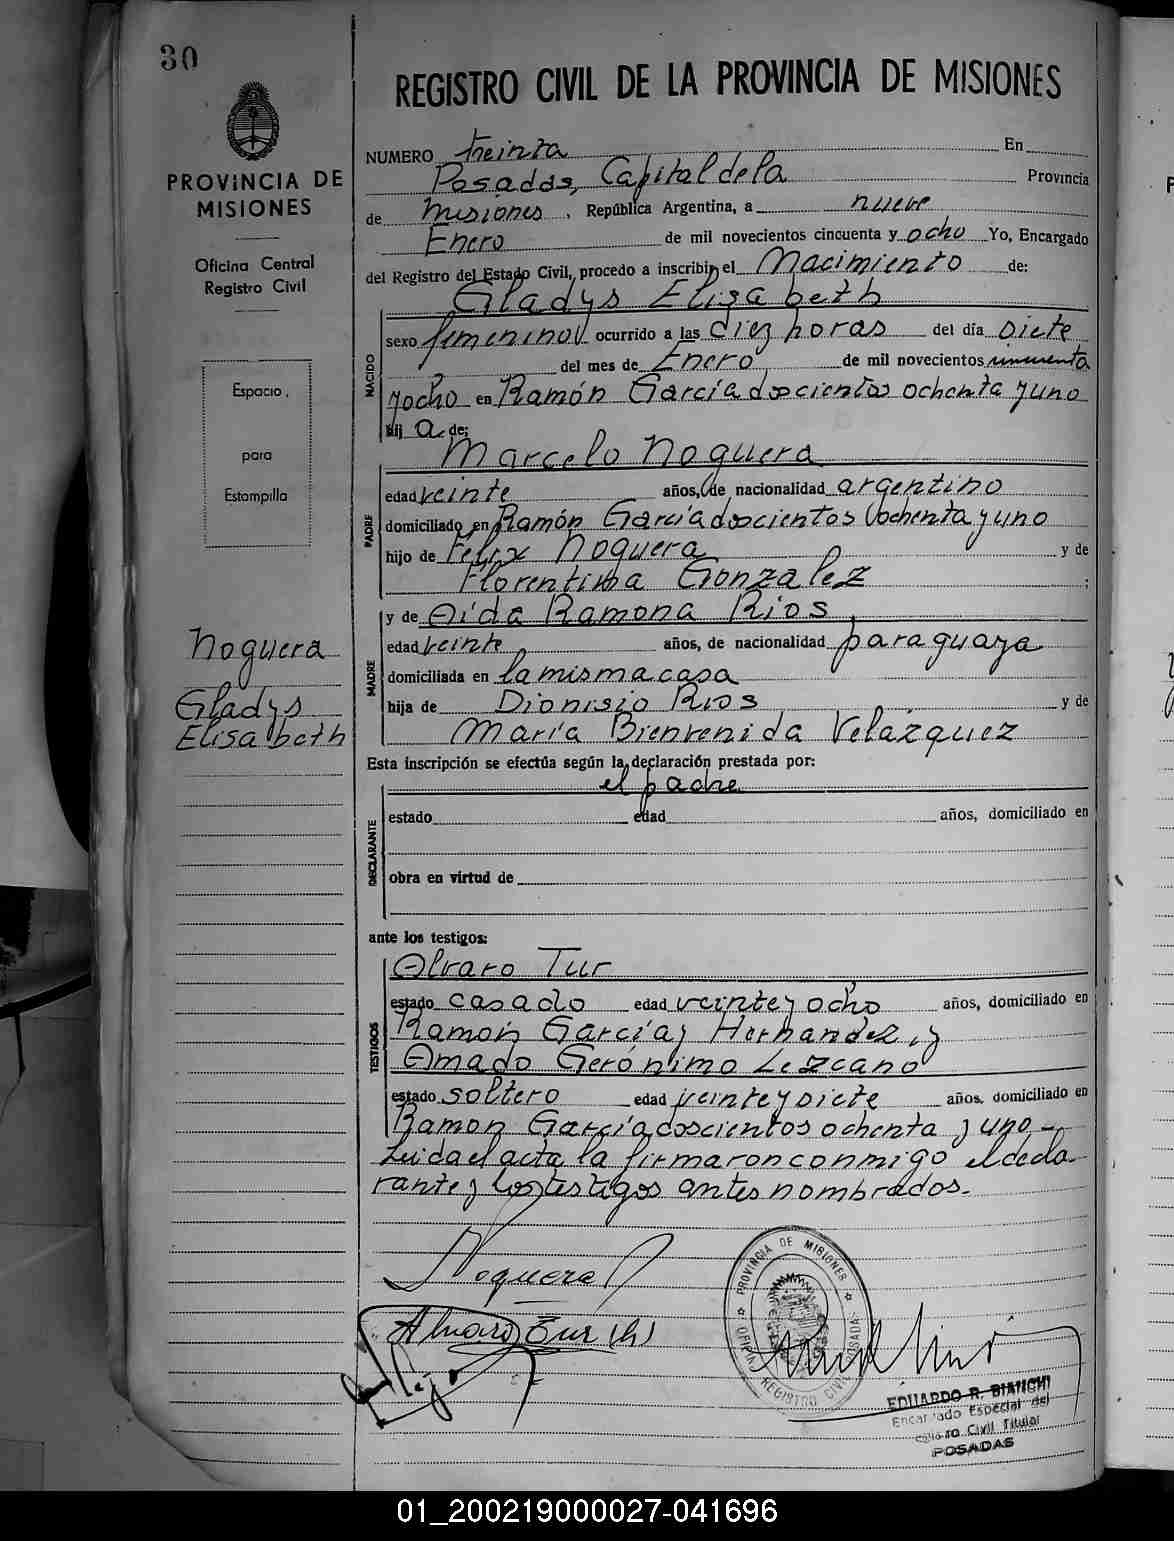 30
REGISTRO CIVIL DE LA PROVINCIA DE MISIONES
PROVINCIA DE
MISIONES
Oficina Central
Registro Civil
Espacio
para
Estampilla
Noguera
Gladys
Elisabeth
NUMERO treinta En
Posadas, Capital de la Provincia
de Misiones, República Argentina, a nueve
Enero de mil novecientos cincuenta y ocho Yo, Encargado
del Registro del Estado Civil, procedo a inscribir el Nacimiento de:
Gladys Elisabeth
NACIDO
sexo femenino ocurrido a las diez horas del día siete
del mes de Enero de mil novecientos cincuenta
y ocho en Ramón García doscientos ochenta y uno
hij a de:
Marcelo Noguera
PADRE
edad veinte años, de nacionalidad argentino
domiciliado en Ramón García doscientos ochenta y uno
hijo de Félix Noguera y de
Florentina Gonzalez ;
y de Aída Ramona Rios
MADRE
edad veinte años, de nacionalidad paraguaya
domiciliada en la misma casa
hija de Dionisio Rios y de
María Bienvenida Velázquez
Esta inscripción se efectúa según la declaración prestada por:
el padre
DECLARANTE
estado edad años, domiciliado en
obra en virtud de
ante los testigos:
Alvaro Tur
TESTIGOS
estado casado edad veinte y ocho años, domiciliado en
Ramón García y Hernandez, y
Amado Gerónimo Lezcano
estado soltero edad veinte y siete años, domiciliado en
Ramon García doscientos ochenta y uno -
Leida el acta la firmaron conmigo el decla
rante y los testigos antes nombrados.
Noguera
Alvaro Tur (h)
PROVINCIA DE MISIONES
REGISTRO CIVIL POSADAS
EDUARDO R. BIANCHI
Encargado Especial del
Registro Civil Titular
POSADAS
01_200219000027-041696